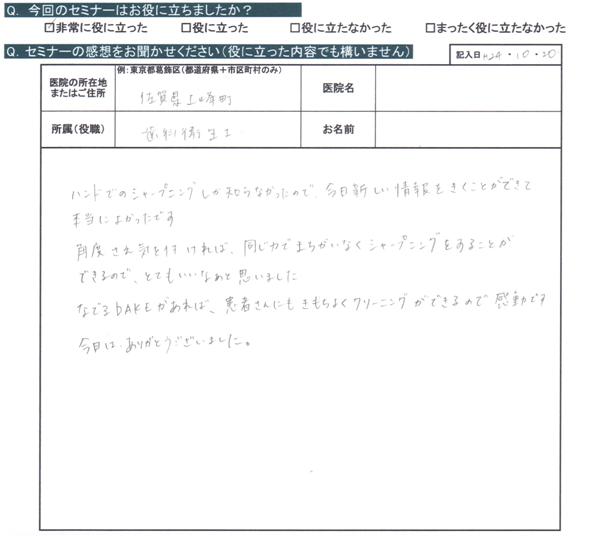 Q. 今回のセミナーはお役に立ちましたか?
☑非常に役に立った □役に立った □役に立たなかった □まったく役に立たなかった
Q. セミナーの感想をお聞かせください(役に立った内容でも構いません)
記入日 H24・10・20
例:東京都葛飾区(都道府県+市区町村のみ)
医院の所在地
またはご住所
佐賀県上峰町
医院名
所属(役職)
歯科衛生士
お名前
ハンドでのシャープニングしか知らなかったので、今日新しい情報をきくことができて
本当によかったです
角度さえ気を付ければ、同じ力でまちがいなくシャープニングをすることが
できるので、とてもいいなぁと思いました
なでるDAKEがあれば、患者さんにもきもちよくクリーニングができるので感動です
今日は、ありがとうございました。